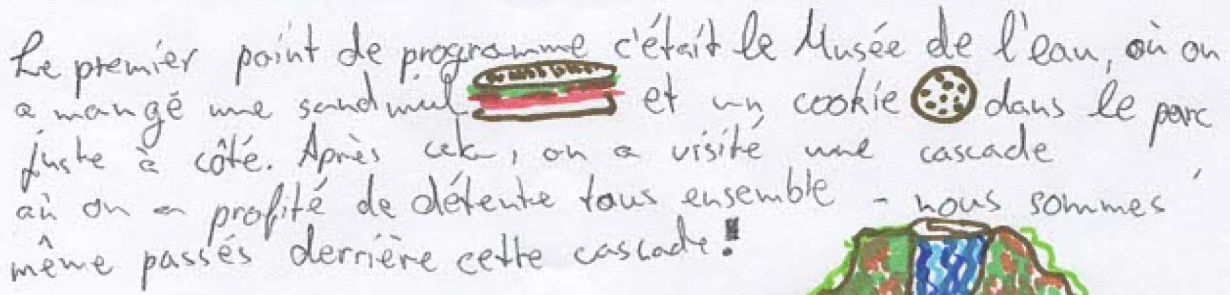 Le premier point de programme c'était le Musée de l'eau, où on
a mangé une sandwich et un cookie dans le parc
juste à côté. Après cela, on a visité une cascade
où on a profité de détente tous ensemble - nous sommes
même passés derrière cette cascade!